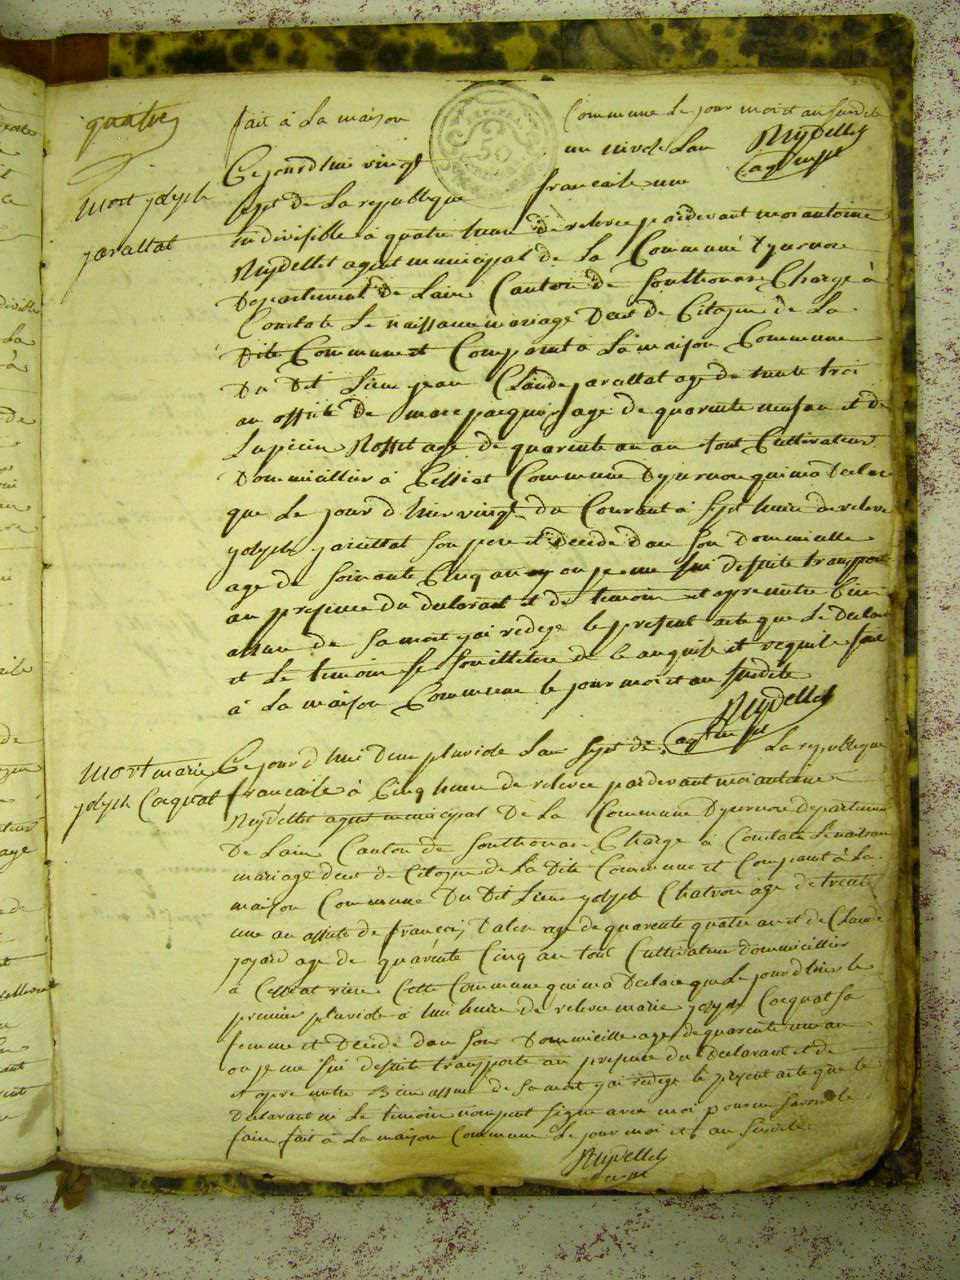 quatre
fait à La maison Commune Le jour moi et an Susdite
Ruydellet
agent mpl
mort joseph
jarattat
Ce jourdhui vingt un nivos Lan
sept de La republique francaise une
indivisible à quatre heure de releve pardevant moi antoine
Ruydellet agent municipal de La Commune
Departement de Lain Canton de Southonax Charge à
Constate Le naissance mariage Deces de Citoyen de La
Dite Commune et Comparut à La maison Commune
Du Dit Lieu jean Claude jarattat age de trente troi
an assiste de marc age de quarente neuf an et de
Lupicin Rossit age de quarente un an tout Cultivateur
Dommicillier à Cessiat Commune qui ma Declare
que Le jour d hier vingt du Courant à sept heure de releve
joseph jarattat son pere et decede dan son Dommicille
age de soixante Cinq an ou je me sui desuite transporte
au presence du declarant et de temoin et apre metre bien
assure de sa mort jai redige le present acte que Le Declarant
et Le temoin
à La maison Commune le jour moi et an susdite
Ruydellet
agent mpl
mort marie
joseph Cocquat
Ce jour d hui deux pluviose Lan sept de La republique
francaise à Cinq heure de releve pardevant moi antoine
Ruydellet agent municipal De La Commune departement
De Lain Canton de Southonax Charge à Constate Le naissance
mariage deces de Citoyen de La Dite Commune et Comparut à La
maison Commune Du Dit Lieu joseph Chatron age de trente
une an assiste de francoi age de quarente quatre an et de Claude
joyard age de quarente Cinq an tout Cultivateur dommicillier
à Cessiat Cette Commune qui ma Declare que Le jour d hier le
premier pluviose à huit heure de releve marie joseph Cocquat sa
femme et Decede dan son Dommicille age de quarente une an
ou je me sui desuite transporte au presence du Declarant et de
et apre metre Bien assure de sa mort jai redige le present acte que le
Declarant ni Le temoin nonpeut signe avec moi pour ne Savoir le
faire fait à La maison Commune Le jour moi et an susdite
Ruydellet